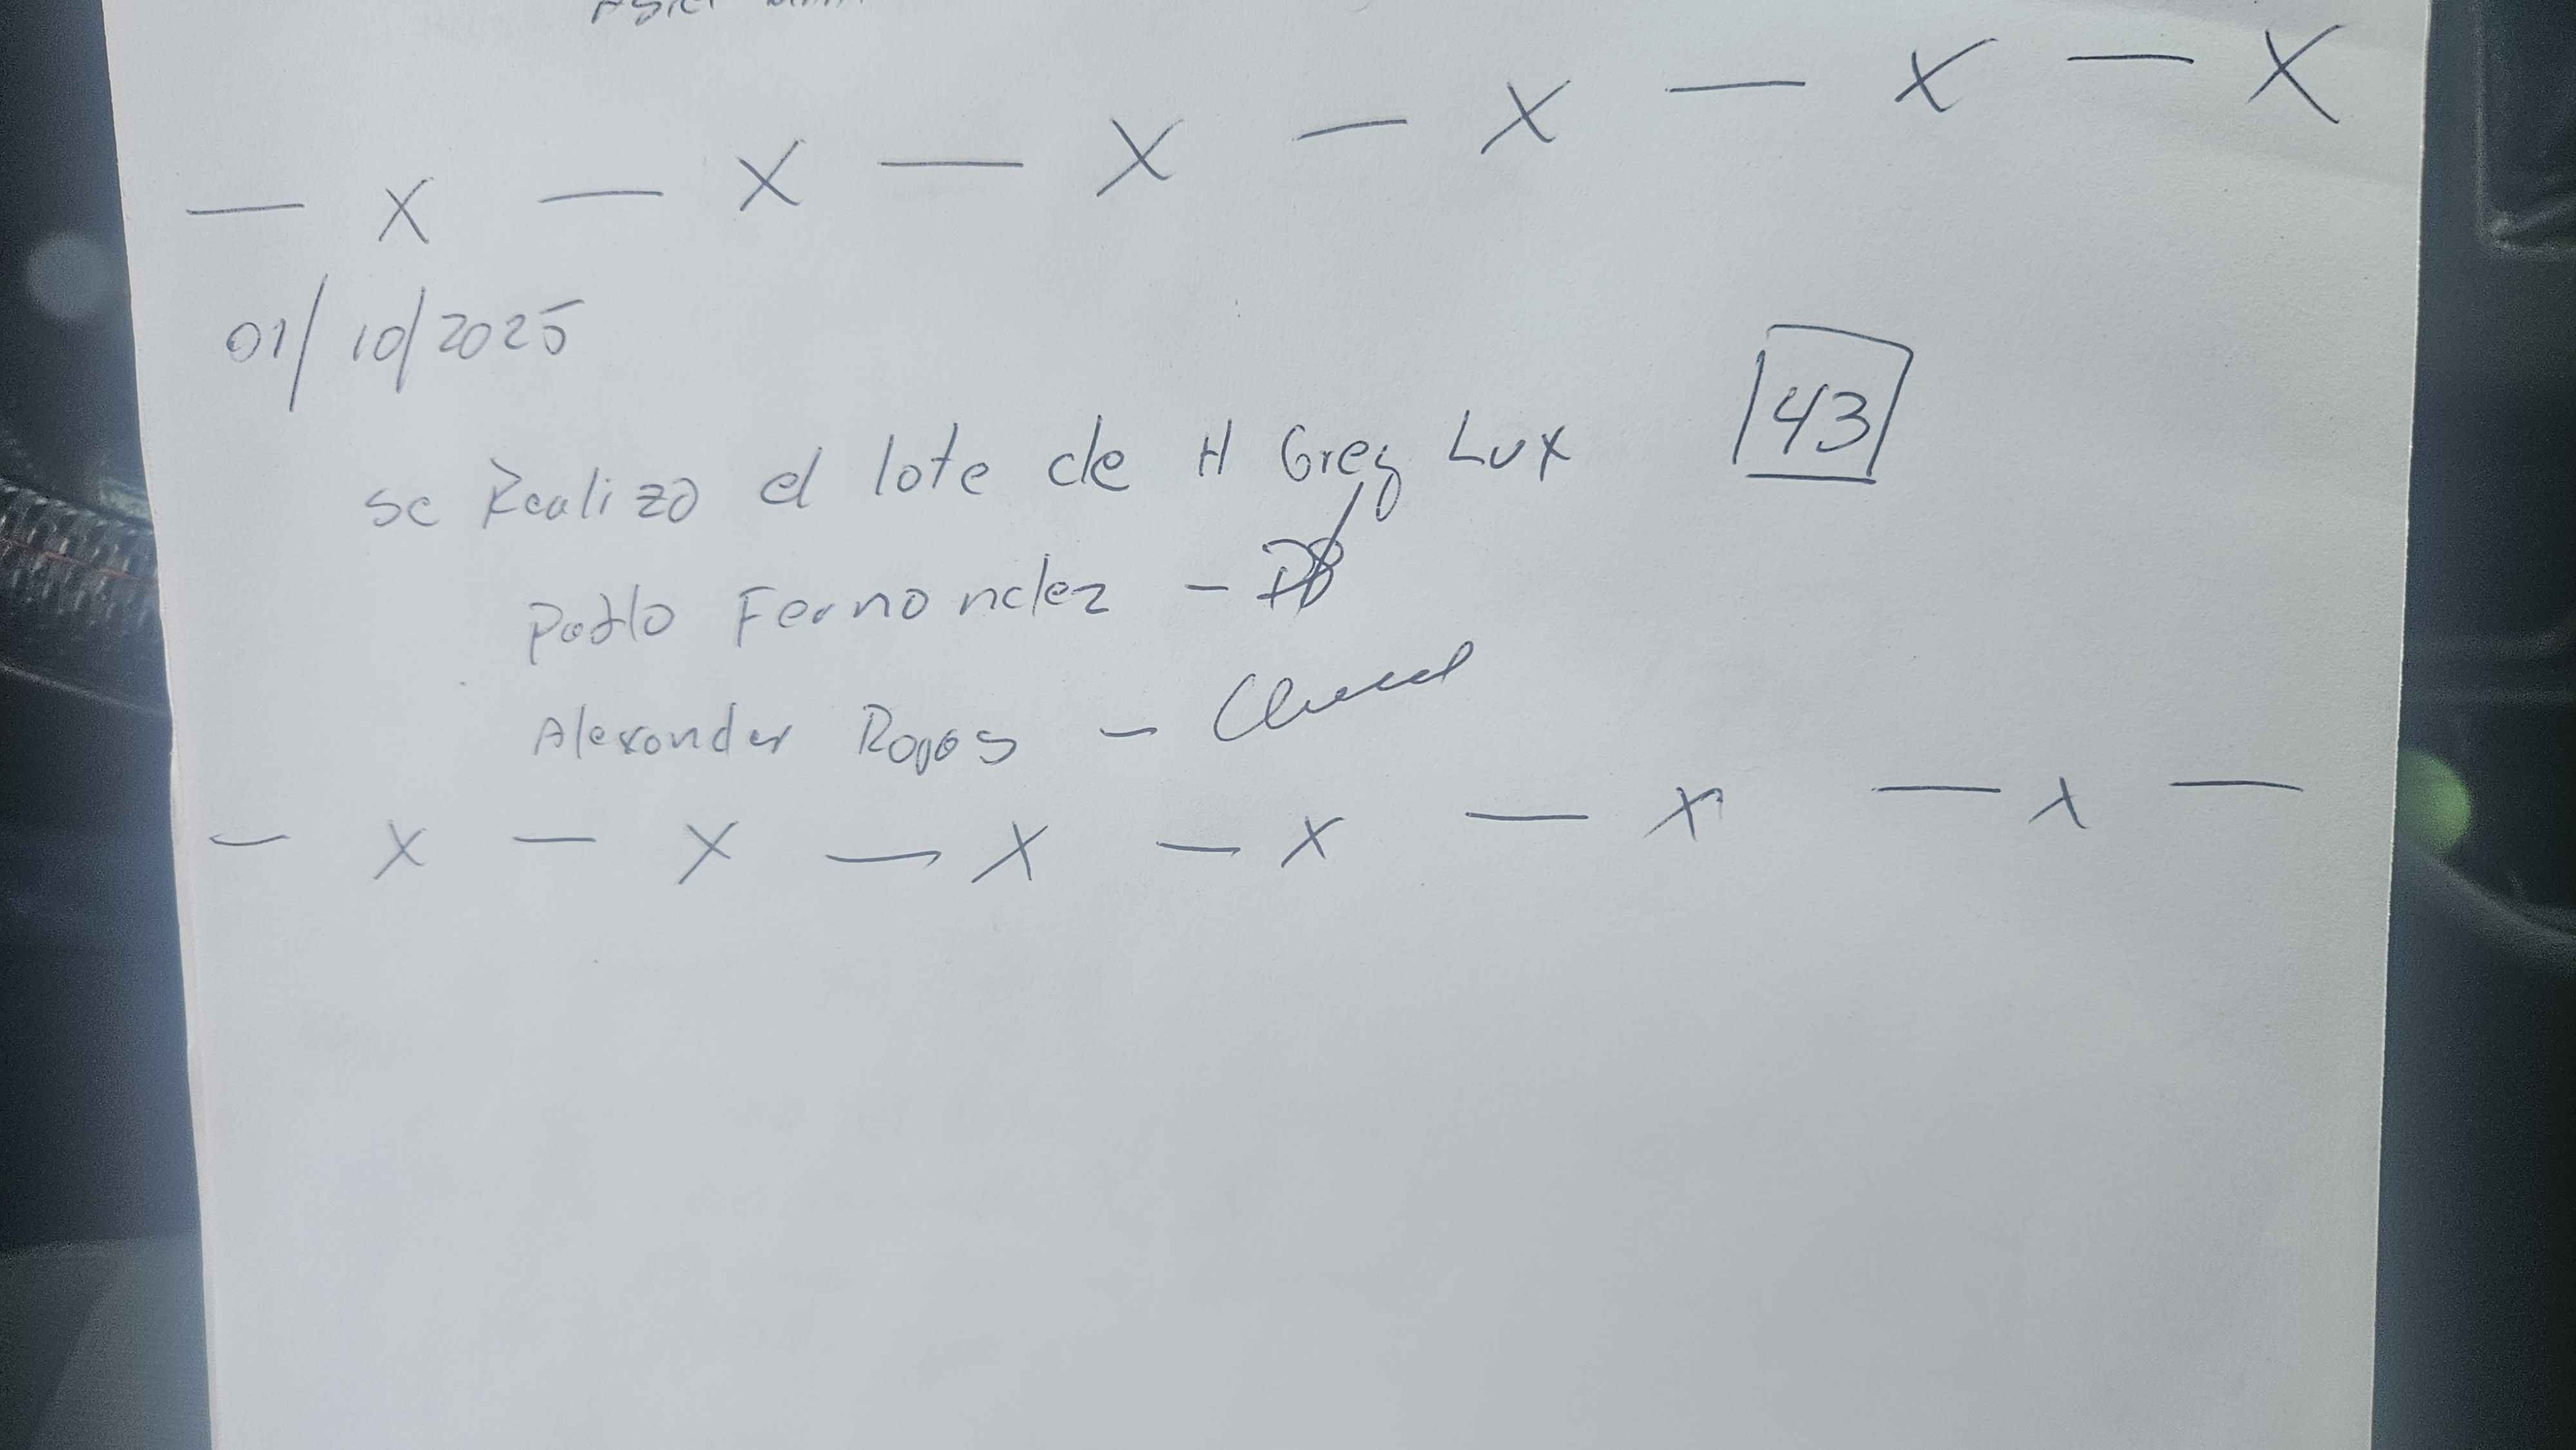 — X — X — X — X — X — X
01/10/2025
se Realizo el lote de H Greg Lux 43
Pablo Fernandez -
Alexander Rojas -
— X — X — X — X — X — X —